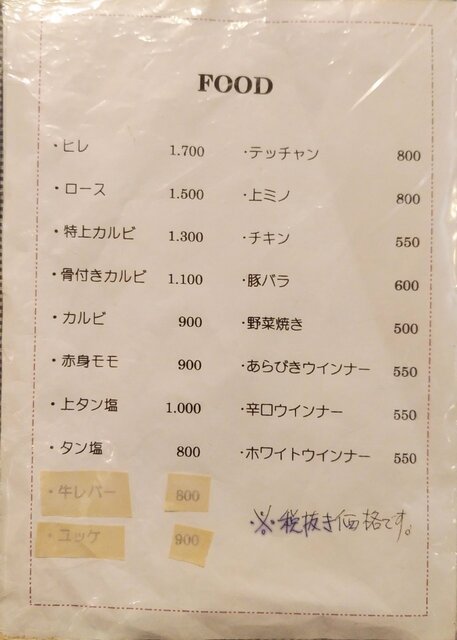 FOOD
・ヒレ 1.700
・ロース 1.500
・特上カルビ 1.300
・骨付きカルビ 1.100
・カルビ 900
・赤身モモ 900
・上タン塩 1.000
・タン塩 800
・牛レバー 800
・ユッケ 900
・テッチャン 800
・上ミノ 800
・チキン 550
・豚バラ 600
・野菜焼き 500
・あらびきウインナー 550
・辛口ウインナー 550
・ホワイトウインナー 550
・※・税抜き価格です。